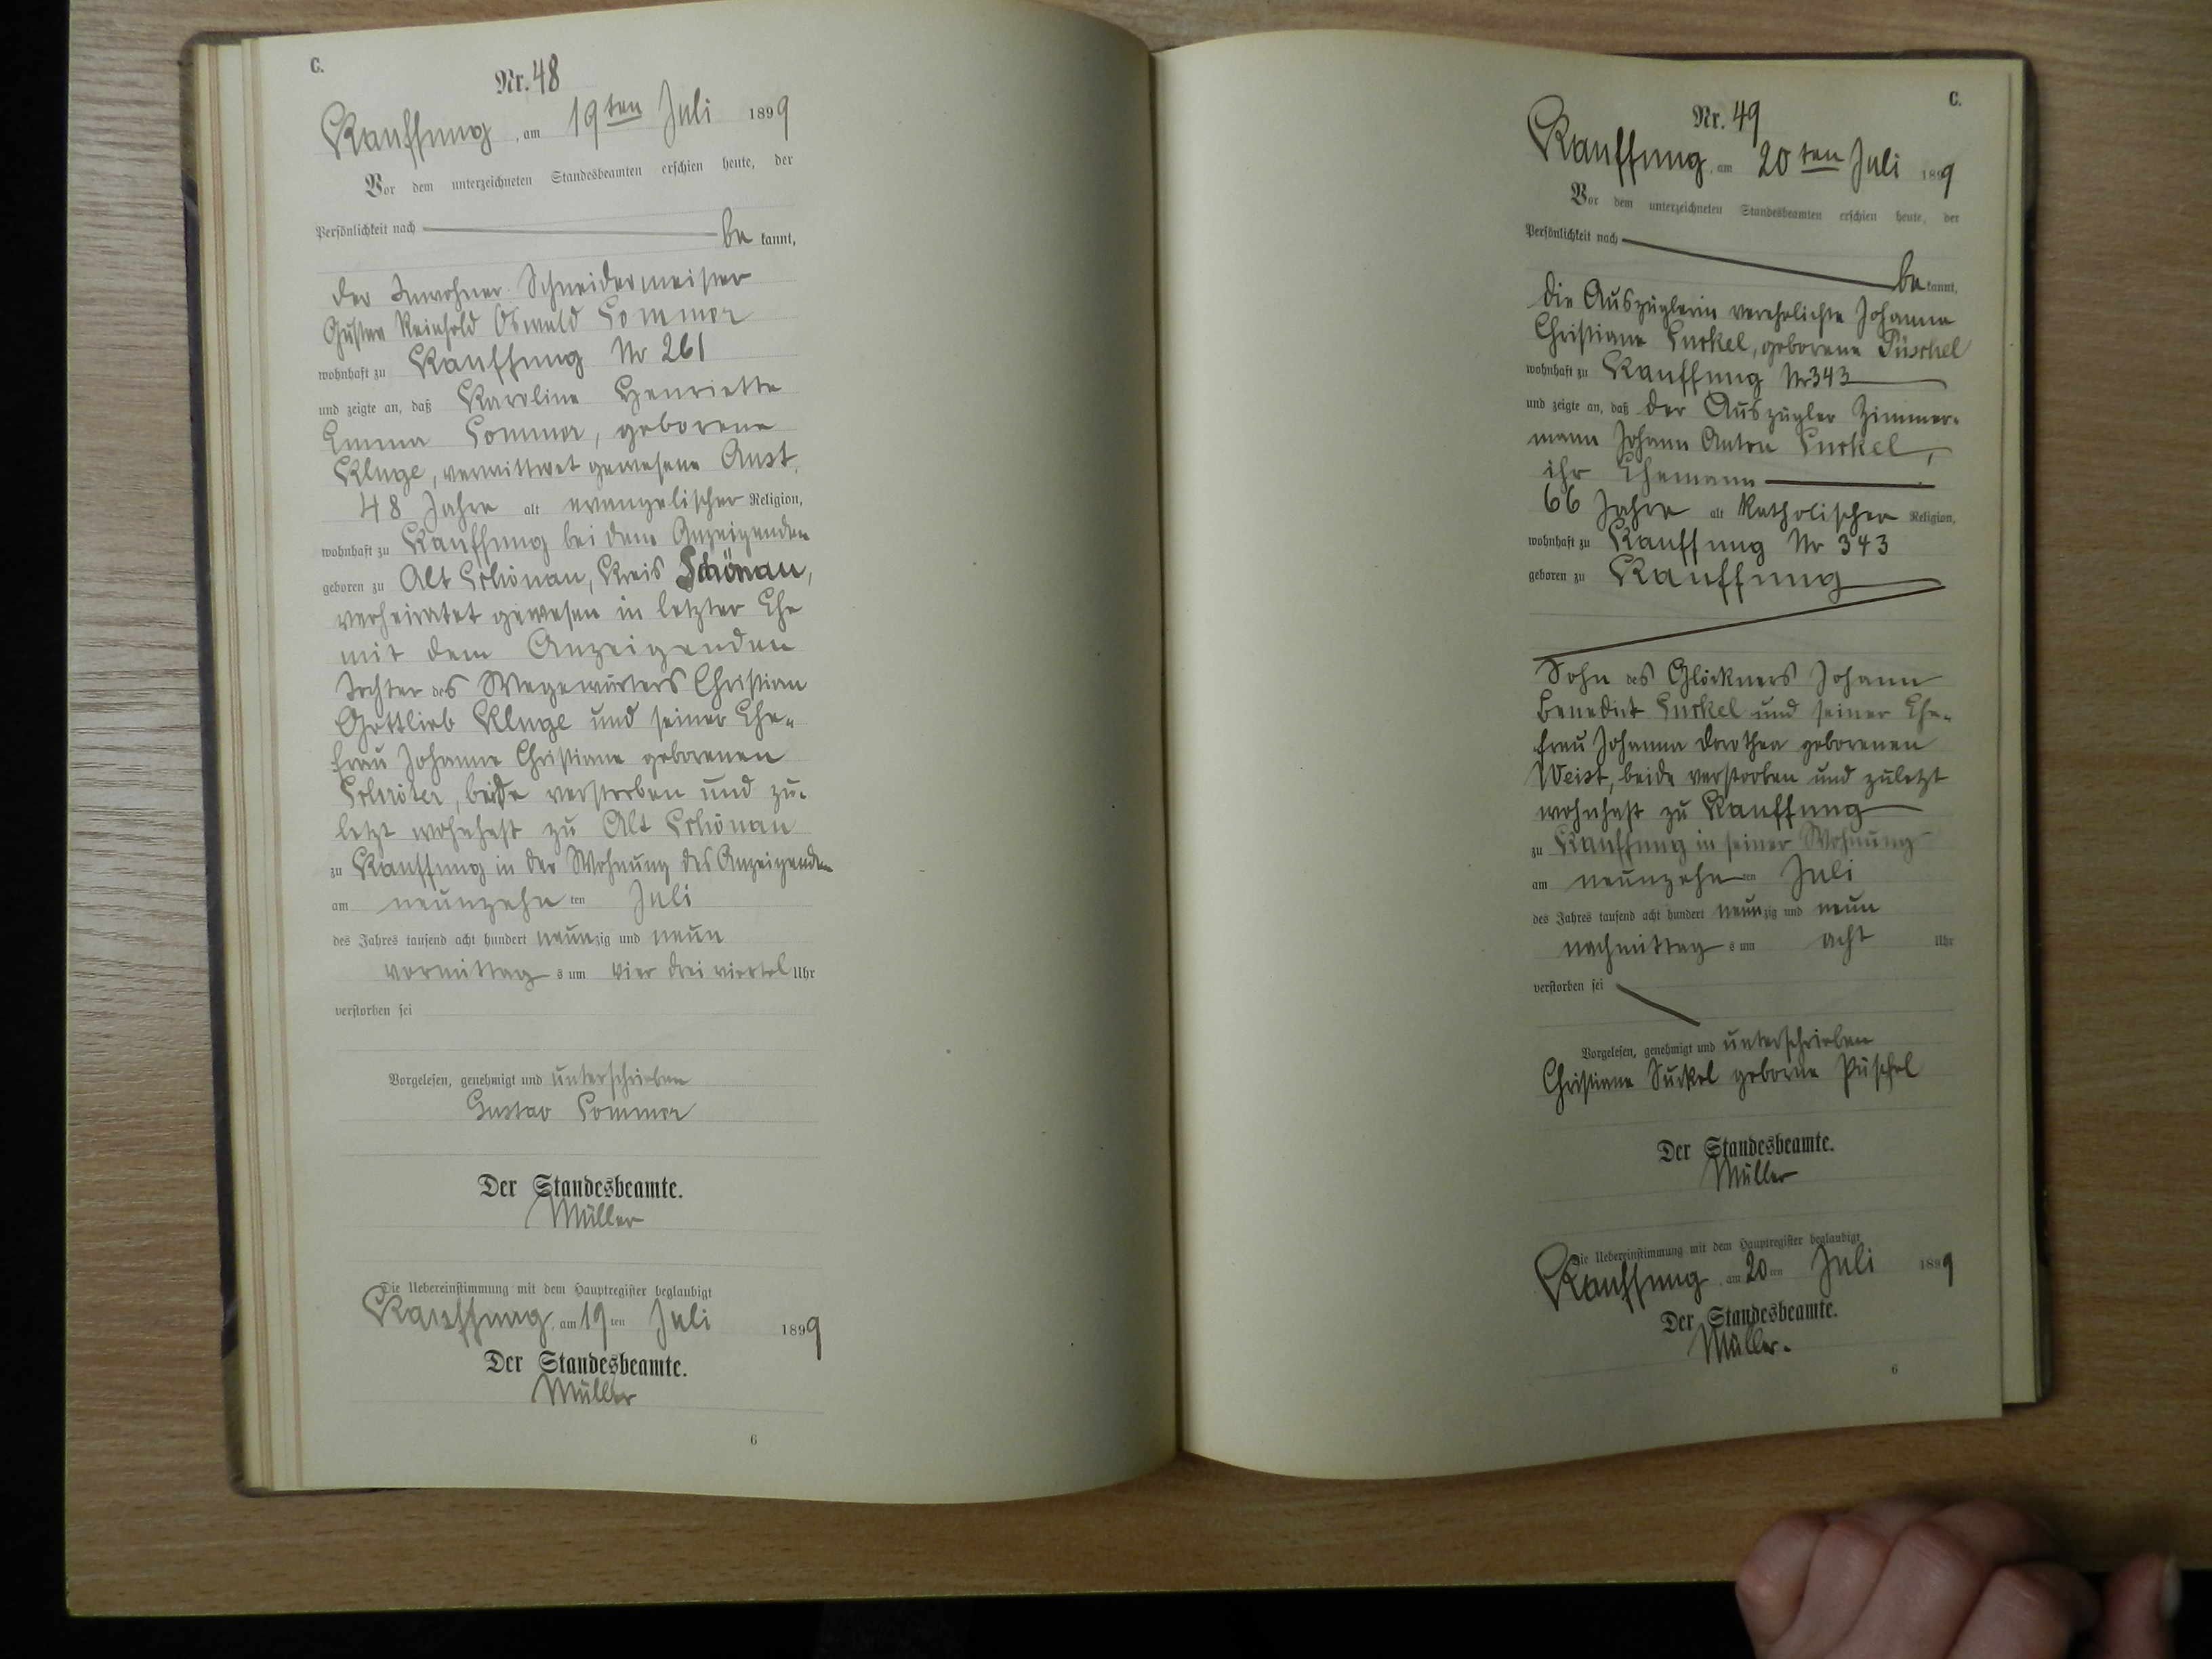 C.
Nr. 48
Kauffung, am 19ten Juli 1899
Vor dem unterzeichneten Standesbeamten erschien heute, der
Persönlichkeit nach be kannt,
der Inwohner Schneidermeister
Gustav Reinhold Oswald Sommer
wohnhaft zu Kauffung Nr 261
und zeigte an, daß Karoline Henriette
Emma Sommer, geborene
Kluge, verwittwet gewesene Aust,
48 Jahre alt evangelischer Religion,
wohnhaft zu Kauffung bei dem Anzeigenden
geboren zu Alt Schönau, Kreis Schönau,
verheiratet gewesen in letzter Ehe
mit dem Anzeigenden
Tochter des Wegewärters Christian
Gottlieb Kluge und seiner Ehe-
frau Johanne Christiane geborenen
Schröter, beide verstorben und zu-
letzt wohnhaft zu Alt Schönau
zu Kauffung in der Wohnung des Anzeigenden
am neunzehn ten Juli
des Jahres tausend acht hundert neunzig und neun
vormittag s um vier drei viertel Uhr
verstorben sei
Vorgelesen, genehmigt und unterschrieben
Gustav Sommer
Der Standesbeamte.
Müller
Die Uebereinstimmung mit dem Hauptregister beglaubigt
Kauffung, am 19ten Juli 1899
Der Standesbeamte.
Müller
6
C.
Nr. 49
Kauffung, am 20ten Juli 1899
Vor dem unterzeichneten Standesbeamten erschien heute, der
Persönlichkeit nach be kannt,
die Auszüglerin verehelichte Johanna
Christiane Suckel, geborene Püschel
wohnhaft zu Kauffung Nr 343
und zeigte an, daß der Auszügler Zimmer-
mann Johann Anton Suckel,
ihr Ehemann
66 Jahre alt katholischer Religion,
wohnhaft zu Kauffung Nr 343
geboren zu Kauffung
Sohn des Glöckners Johann
Benedict Suckel und seiner Ehe-
frau Johanna Dorothea geborenen
Weist, beide verstorben und zuletzt
wohnhaft zu Kauffung
zu Kauffung in seiner Wohnung
am neunzehn ten Juli
des Jahres tausend acht hundert neunzig und neun
nachmittag s um acht Uhr
verstorben sei
Vorgelesen, genehmigt und unterschrieben
Christiane Suckel geborne Püschel
Der Standesbeamte.
Müller
Die Uebereinstimmung mit dem Hauptregister beglaubigt
Kauffung, am 20ten Juli 1899
Der Standesbeamte.
Müller.
6